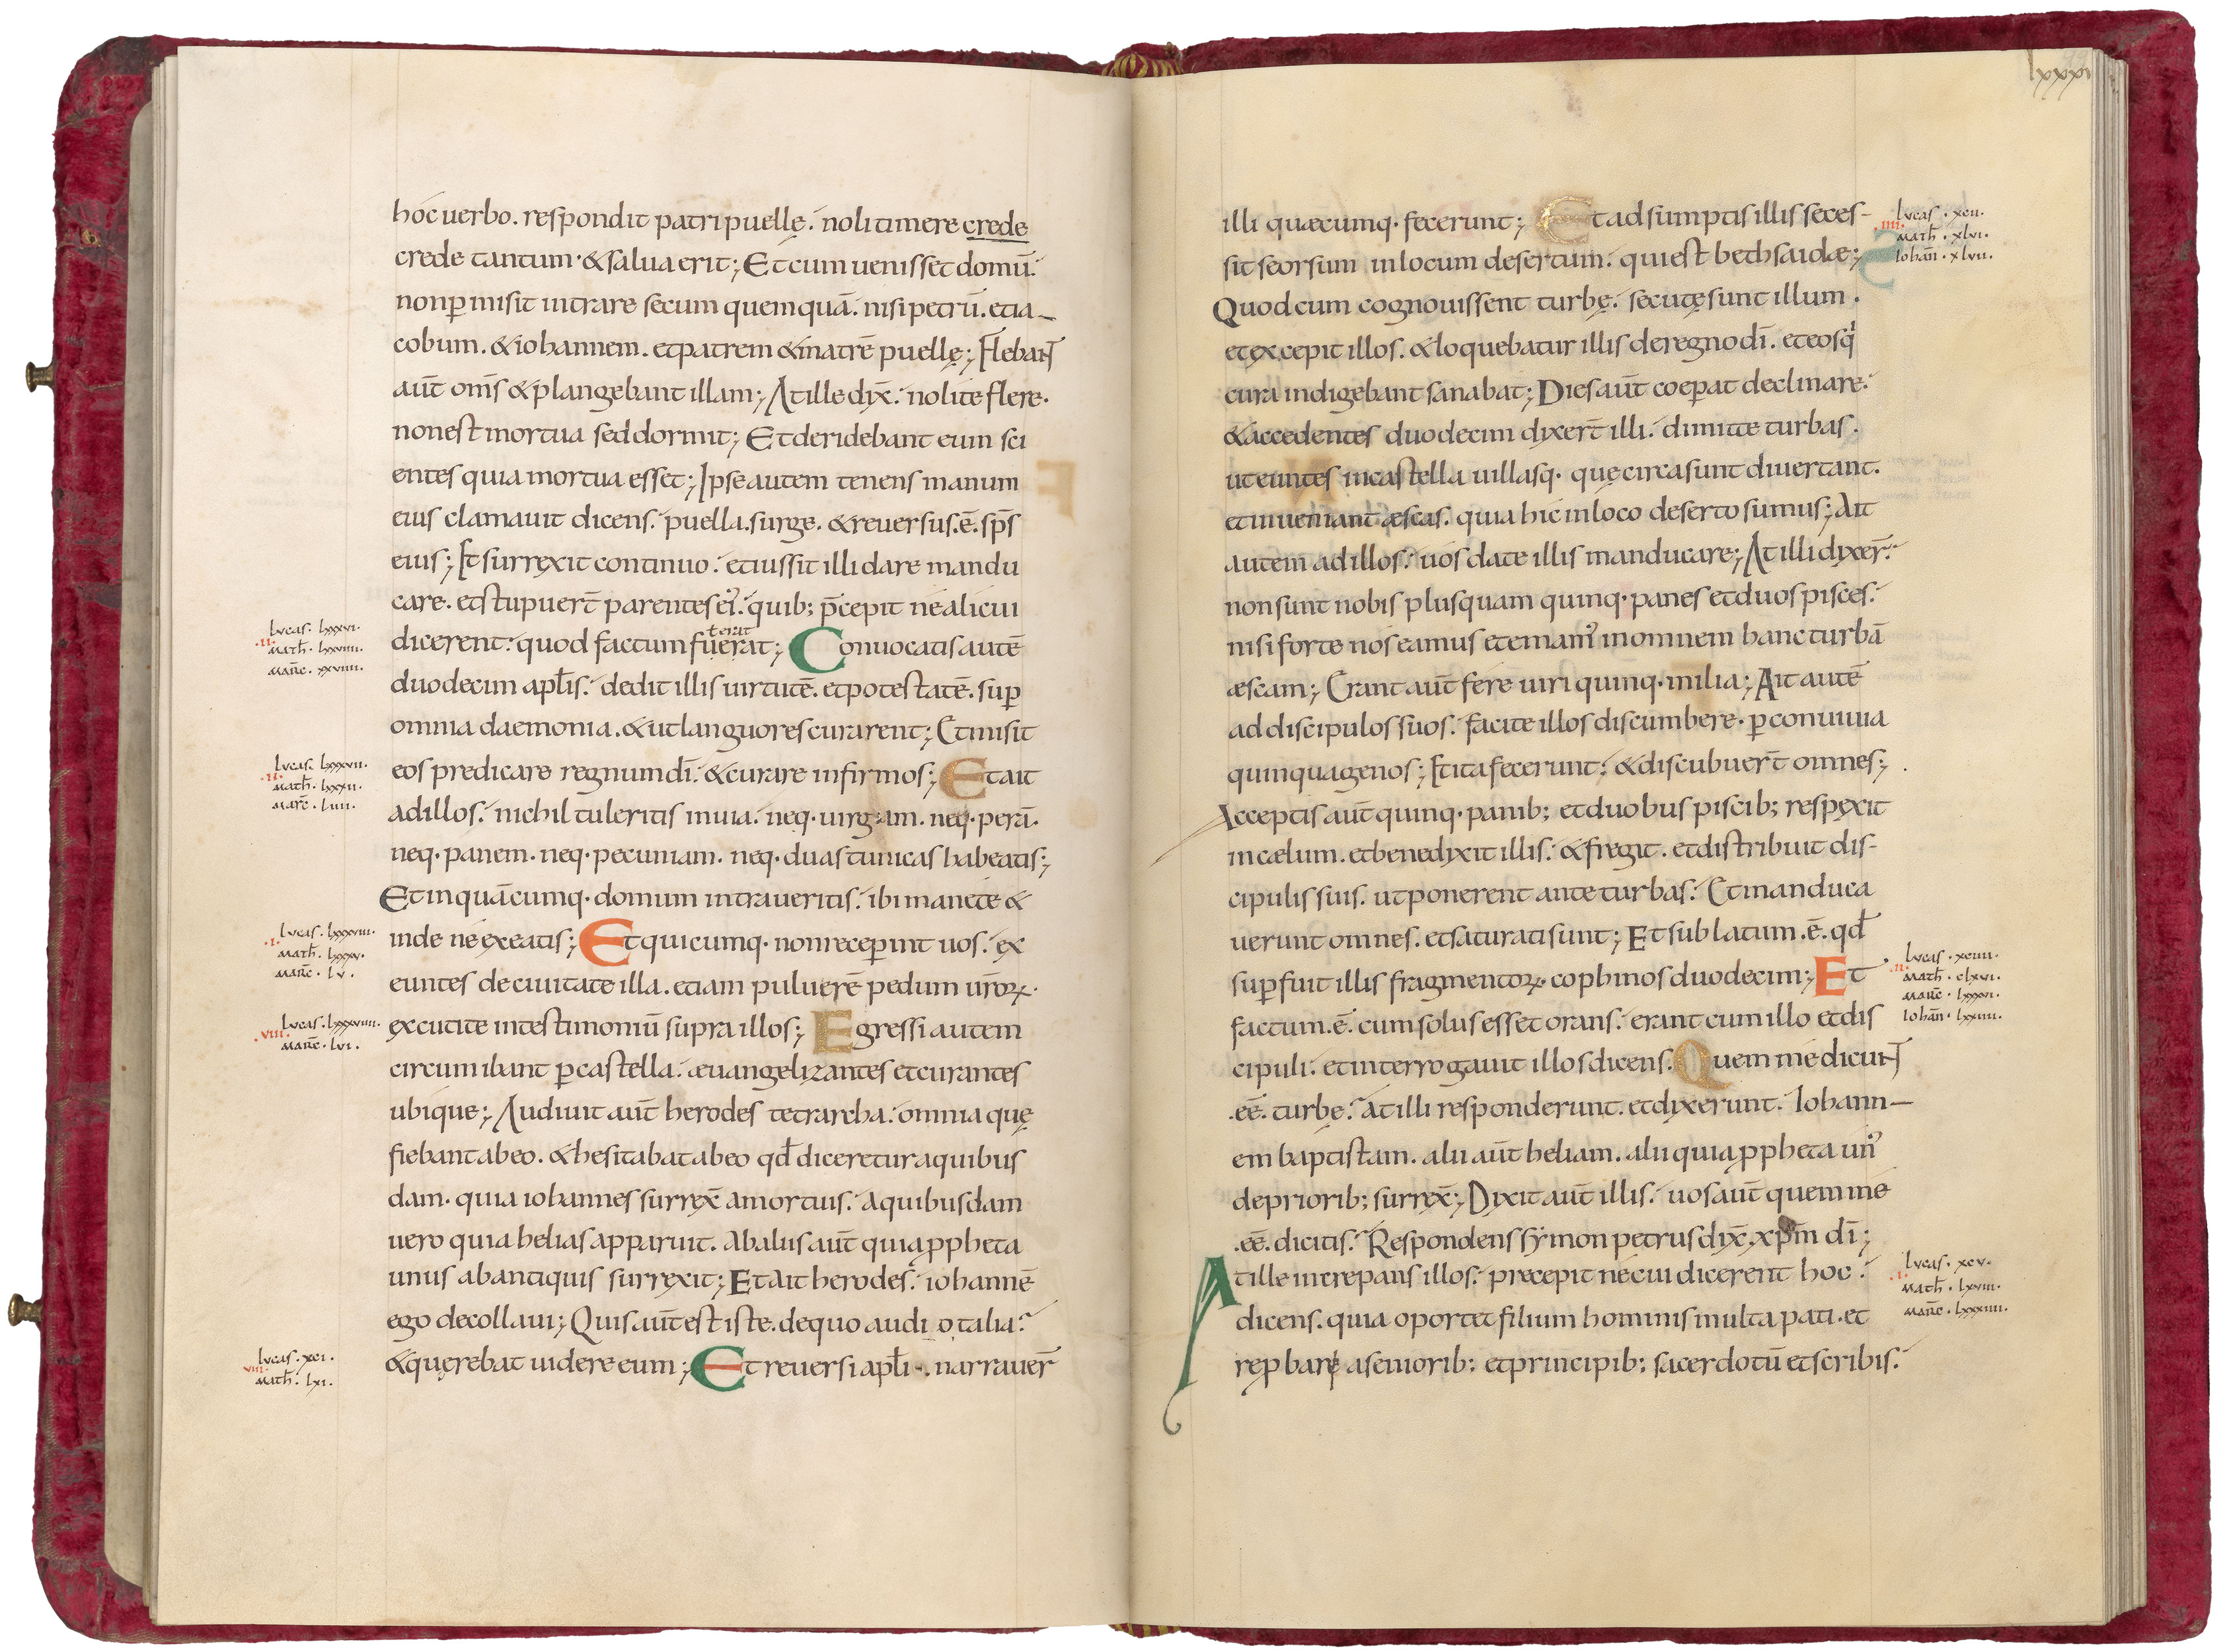 hoc uerbo. respondit patri puellę. noli timere crede
crede tantum. & salua erit; Et cum uenisset domū.
non ꝑmisit intrare secum quemquā. nisi petrū. et ia-
cobum. & iohannem. et patrem & matrē puellę; Flebant
aūt om̄s & plangebant illam; At ille dix̄. nolite flere.
non est mortua sed dormit; Et deridebant eum sci
entes quia mortua esset; Ipse autem tenens manum
eius clamauit dicens. puella. surge. & reuersus. ē. sp̄s
eius; Et surrexit continuo. et iussit illi dare mandu
care. et stupuer̄t parentes ei᾽. quib; p̄cepit ne alicui
terat
Lucas. lxxxvi.
.ii.
Math̄. lxxviiii.
Marc̄. xxviiii.
dicerent. quod factum fuerat; Conuocatis autē
duodecim apl̄is. dedit illis uirtutē. et potestatē. suꝑ
omnia daemonia. & ut languores curarent; Et misit
Lucas. lxxxvii.
.ii.
Math̄. lxxxii.
Marc̄. liiii.
eos predicare regnum dī. & curare infirmos; Et ait
ad illos. nichil tuleritis in uia. neq. uirgam. neq. perā.
neq. panem. neq. pecuniam. neq. duas tunicas habeatis;
Et in quācumq. domum intraueritis. ibi manete &
Lucas. lxxxviii.
.i.
Math̄. lxxxv.
Marc̄. lv.
inde ne exeatis; Et quicumq. non receꝑint uos. ex
euntes de ciuitate illa. etiam puluerē pedum ur̄oꝝ.
Lucas. lxxxviiii.
.viii.
Marc̄. lvi.
excutite in testimoniū supra illos; Egressi autem
circumibant ꝑ castella. æuangelizantes et curantes
ubique; Audiuit aūt herodes tetrarcha. omnia quę
fiebant ab eo. & hesitabat ab eo qd̄ diceretur a quibus
dam. quia iohannes surrex̄ a mortuis. a quibusdam
uero quia helias apparuit. ab aliis aūt quia ꝓpheta
unus ab antiquis surrexit; Et ait herodes. iohannē
ego decollaui; Quis aūt est iste. de quo audi o talia.
Lucas. xci.
viii.
Math̄. lxi.
& querebat uidere eum; Et reuersi apl̄i. narrauer̄
lxxxi
illi quæcumq. fecerunt; Et adsumptis illis seces-
Lucas. xcii.
.iii.
Math̄. xlvi.
Iohan̄. xlvii.
sit seorsum in locum desertum. qui est bethsaidæ;
Quod cum cognouissent turbę. secutę sunt illum.
et excepit illos. & loquebatur illis de regno dī. et eos q
cura indigebant sanabat; Dies aūt coeꝑat declinare.
& accedentes duodecim dixer̄t illi. dimitte turbas.
ut euntes in castella uillasq. quę circa sunt diuertant.
et inueniant æscas. quia hic in loco deserto sumus; Ait
autem ad illos. uos date illis manducare; At illi dixer̄.
non sunt nobis plus quam quinq. panes et duos pisces.
nisi forte nos eamus et emam᾽ in omnem hanc turbā
æscam; Erant aūt fere uiri quinq. milia; Ait autē
ad discipulos suos. facite illos discumbere. ꝑ conuiuia
quinquagenos; Et ita fecerunt; & discubuer̄t omnes;
Acceptis aūt quinq. panib; et duobus piscib; respexit
in cælum. et benedixit illis. & fregit. et distribuit dis-
cipulis suis. ut ponerent ante turbas. Et manduca
uerunt omnes. et saturati sunt; Et sublatum. ē. qd̄
Lucas. xciiii.
.ii.
Math̄. clxvi.
Marc̄. lxxxii.
Iohan̄. lxxiiii.
suꝑfuit illis fragmentoꝝ. cophinos duodecim; Et
factum. ē. cum solus esset orans. erant cum illo et dis
cipuli. et interrogauit illos dicens. Quem me dicunt
.ee̅. turbę. at illi responderunt. et dixerunt. Iohann-
em baptistam. alii aūt heliam. alii quia ꝓpheta un᾽
de priorib; surrex̄; Dixit aūt illis. uos aūt quem me
.ee̅. dicitis. Respondens symon petrus dix̄. xp̄m dī;
Lucas. xcv.
.i.
Math̄. lxviii.
Marc̄. lxxxiiii.
At ille increpans illos. precepit ne cui dicerent hoc.
dicens. quia oportet filium hominis multa pati. et
reꝓbari a seniorib; et principib; sacerdotū et scribis.